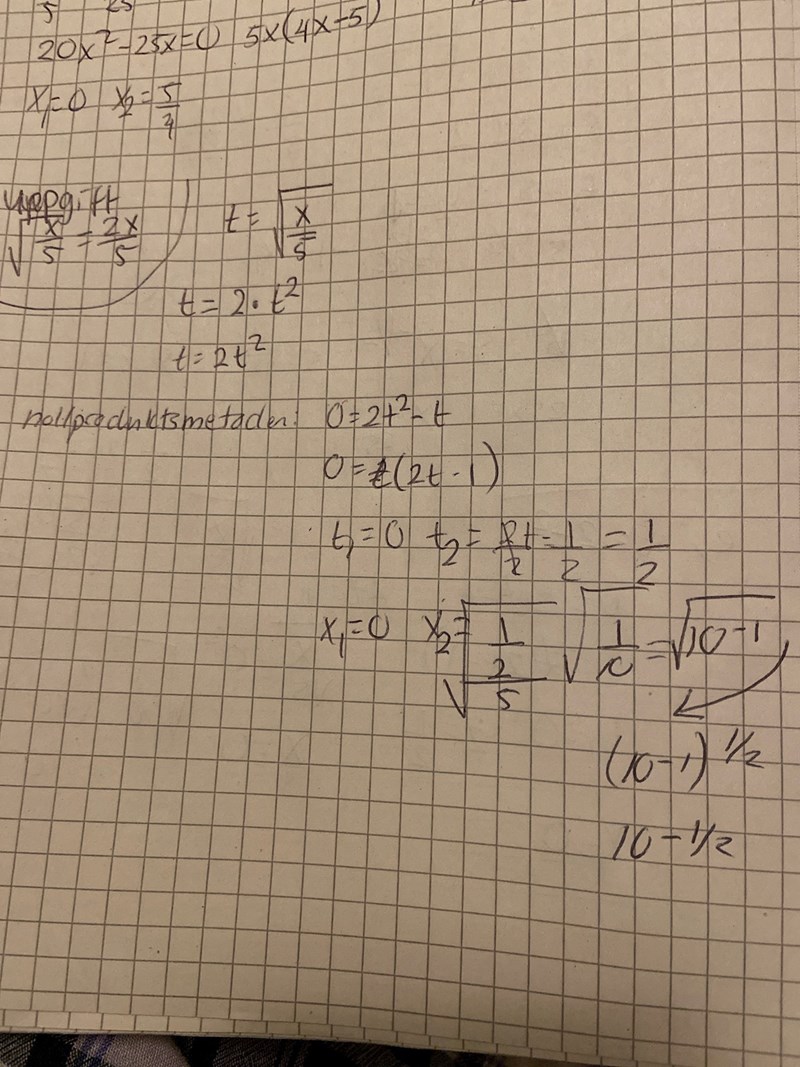 5 25
20x²-25x=0 5x(4x-5)
x₁=0 x₂=5/4
uppgift
√(x/5) = 2x/5 t = √(x/5)
t = 2·t²
t = 2t²
nollproduktsmetoden: 0=2t²-t
0=t(2t-1)
t₁=0 t₂= 2t/2 = 1/2 = 1/2
x₁=0 x₂=√((1/2)/5) √(1/10) = √10⁻¹
(10⁻¹)^1/2
10^-1/2